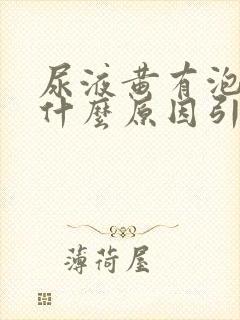 尿液黄有泡
什麼原因引
薄荷屋